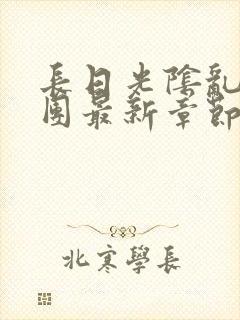 長日光陰亂
團最新章節
北寒學長